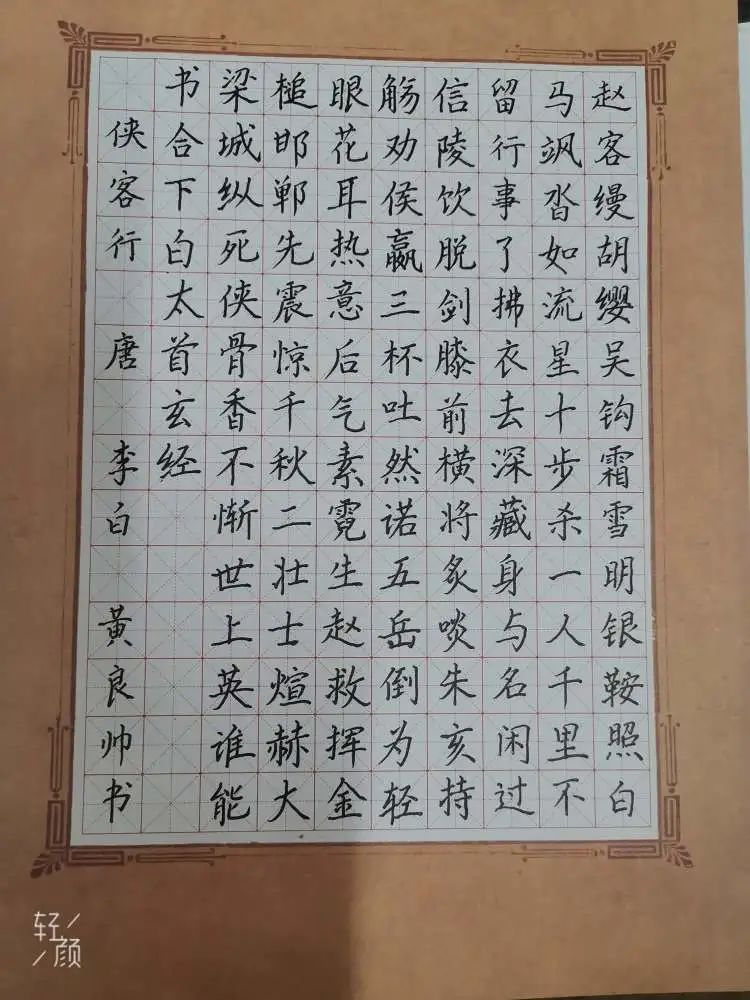 赵客缦胡缨吴钩霜雪明银鞍照白
马飒沓如流星十步杀一人千里不
留行事了拂衣去深藏身与名闲过
信陵饮脱剑膝前横将炙啖朱亥持
觞劝侯嬴三杯吐然诺五岳倒为轻
眼花耳热意后气素霓生赵救挥金
槌邯郸先震惊千秋二壮士煊赫大
梁城纵死侠骨香不惭世上英谁能
书合下白太首玄经
侠客行 唐 李白 黄良帅书
轻颜